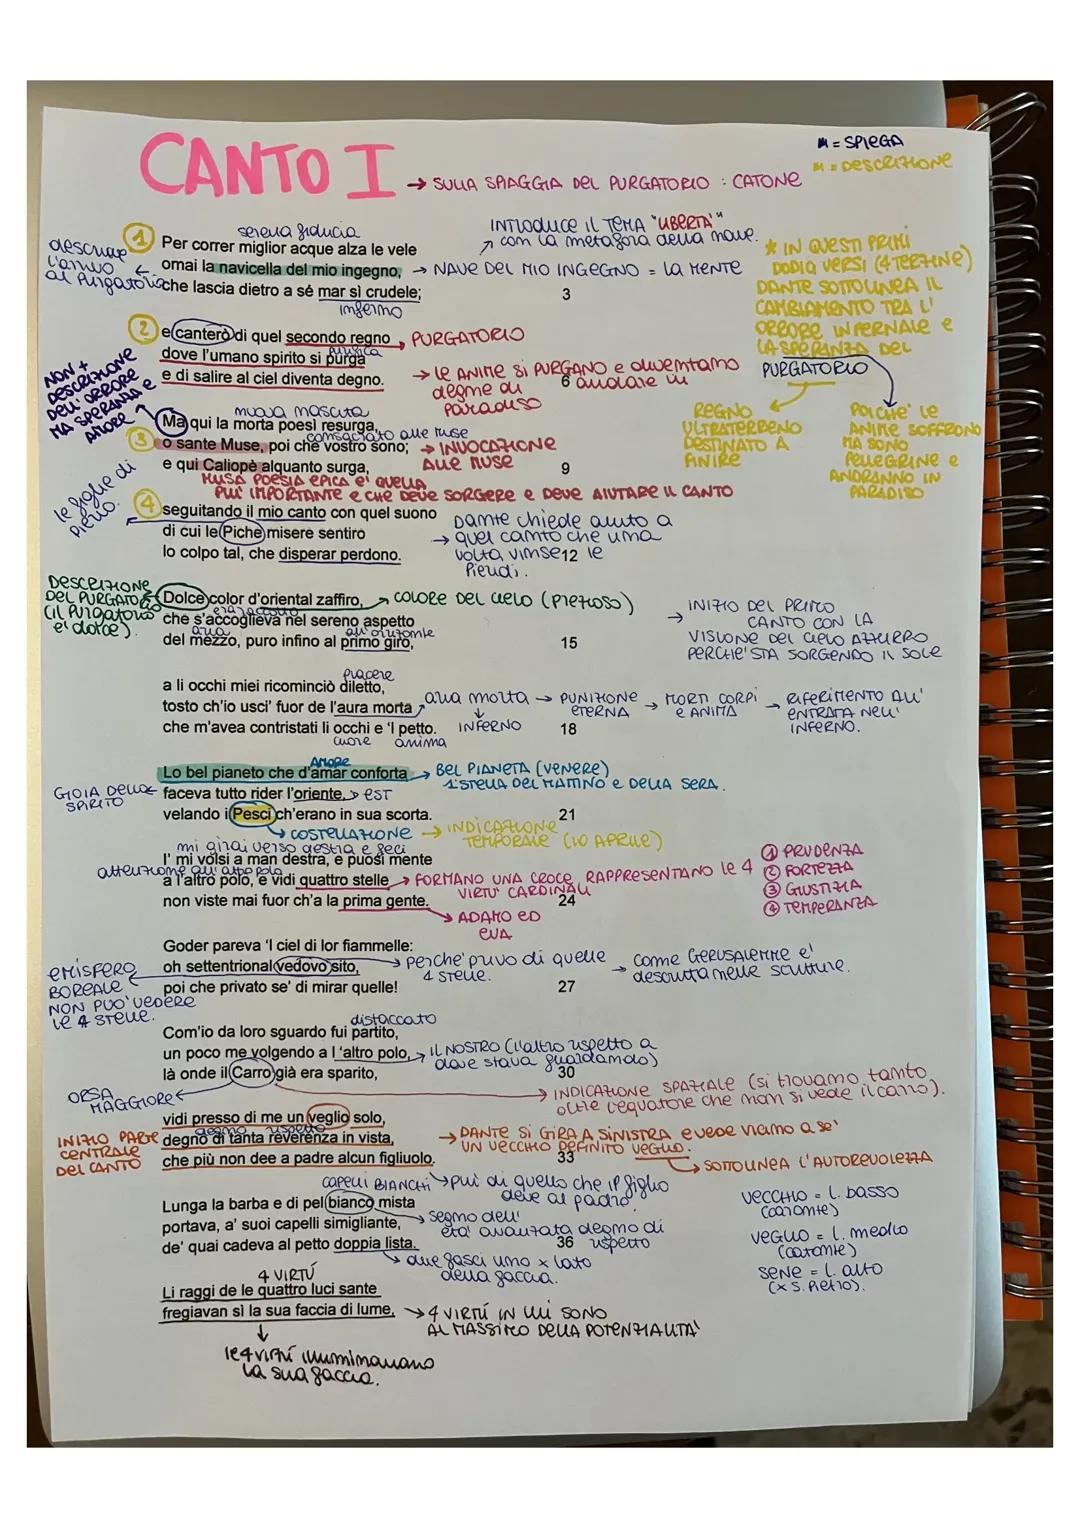 CANTO I → SULLA SPIAGGIA DEL PURGATORIO : CATONE
M = SPIEGA
M = DESCRIZIONE
serena fiducia
INTRODUCE IL TEMA "LIBERTÀ"
con la metafora della nave.
1
descrive l'arrivo al Purgatorio
Per correr miglior acque alza le vele
omai la navicella del mio ingegno, → NAVE DEL MIO INGEGNO = LA MENTE
che lascia dietro a sé mar sì crudele;
3
inferno
* IN QUESTI PRIMI
DODICI VERSI (4 TERZINE)
DANTE SOTTOLINEA IL
CAMBIAMENTO TRA L'
ORRORE INFERNALE e
LA SPERANZA DEL
PURGATORIO
REGNO
ULTRATERRENO
DESTINATO A
FINIRE
POICHE' LE
ANIME SOFFRONO
MA SONO
PELLEGRINE e
ANDRANNO IN
PARADISO
2
e canterò di quel secondo regno PURGATORIO
dove l'umano spirito si purga
e di salire al ciel diventa degno.
6
musica
→ LE ANIME SI PURGANO e diventano
degne di andare in
paradiso
NON +
DESCRIZIONE
DELL'ORRORE
MA SPERANZA e
AMORE
nuova nascita
Ma qui la morta poesì resurga,
consacrato alle muse
3
o sante Muse, poi che vostro sono; → INVOCAZIONE
ALLE MUSE
e qui Caliopè alquanto surga,
9
MUSA POESIA EPICA e' QUELLA
PIU' IMPORTANTE e CHE DEVE SORGERE e DEVE AIUTARE IL CANTO
le figlie di
Pierio.
4
seguitando il mio canto con quel suono
di cui le Piche misere sentiro
lo colpo tal, che disperar perdono.
12
Dante chiede aiuto a
→ quel canto che una
volta vinse le
Pieridi.
DESCRIZIONE
DEL PURGATORIO
(il Purgatorio
e' dolce).
Dolce color d'oriental zaffiro, → COLORE DEL CIELO (PREZIOSO)
era raccolto
che s'accoglieva nel sereno aspetto
aria
all'orizzonte
del mezzo, puro infino al primo giro,
15
→ INIZIO DEL PRIMO
CANTO CON LA
VISIONE DEL CIELO AZZURRO
PERCHE' STA SORGENDO IL SOLE
piacere
a li occhi miei ricominciò diletto,
tosto ch'io usci' fuor de l'aura morta
che m'avea contristati li occhi e 'l petto.
18
cuore anima
aria morta → PUNIZIONE ETERNA → MORTI CORPI e ANIMA → RIFERIMENTO ALL' ENTRATA NELL' INFERNO.
INFERNO
AMORE
Lo bel pianeto che d'amar conforta → BEL PIANETA (VENERE)
1°STELLA DEL MATTINO e DELLA SERA.
GIOIA DELLO
SPIRITO
faceva tutto rider l'oriente, → EST
velando i Pesci ch'erano in sua scorta.
21
→ COSTELLAZIONE → INDICAZIONE
TEMPORALE (10 APRILE)
mi girai verso destra e feci
I' mi volsi a man destra, e puosi mente
attenzione all'altro polo
a l'altro polo, e vidi quattro stelle → FORMANO UNA CROCE, RAPPRESENTANO le 4
VIRTU' CARDINALI
non viste mai fuor ch'a la prima gente.
24
→ ADAMO ED
EVA
1 PRUDENZA
2 FORTEZZA
3 GIUSTIZIA
4 TEMPERANZA
Goder pareva 'l ciel di lor fiammelle:
oh settentrional vedovo sito,
poi che privato se' di mirar quelle!
27
→ perche' privo di quelle
4 STELLE.
→ come GERUSALEMME e'
descritta nelle scritture.
EMISFERO
BOREALE
NON PUO' VEDERE
le 4 STELLE.
distaccato
Com'io da loro sguardo fui partito,
un poco me volgendo a l 'altro polo,
là onde il Carro già era sparito,
30
→ IL NOSTRO (l'altro rispetto a
dove stava guardando)
ORSA
MAGGIORE
→ INDICAZIONE SPAZIALE (si trovamo tanto
oltre l'equatore che non si vede il carro).
vidi presso di me un veglio solo,
degno rispetto
degno di tanta reverenza in vista,
che più non dee a padre alcun figliuolo.
33
INIZIO PARTE
CENTRALE
DEL CANTO
→ DANTE SI GIRA A SINISTRA e vede vicino a se'
UN VECCHIO DEFINITO VEGLIO.
→ SOTTOLINEA L'AUTOREVOLEZZA
CAPELLI BIANCHI
più di quello che il figlio
deve al padre.
Lunga la barba e di pel bianco mista
portava, a' suoi capelli simigliante,
de' quai cadeva al petto doppia lista.
36
→ segno dell'
eta' avanzata degno di
rispetto
→ due fasci uno x lato
della faccia.
VECCHIO = l. basso
(caronte)
VEGLIO = l. medio
(catone)
SENE = l. alto
(x S. Pietro).
4 VIRTÚ
Li raggi de le quattro luci sante
fregiavan sì la sua faccia di lume,
→ 4 VIRTÚ IN LUI SONO
AL MASSIMO DELLA POTENZIALITA'
le 4 virtú illuminavano
la sua faccia.